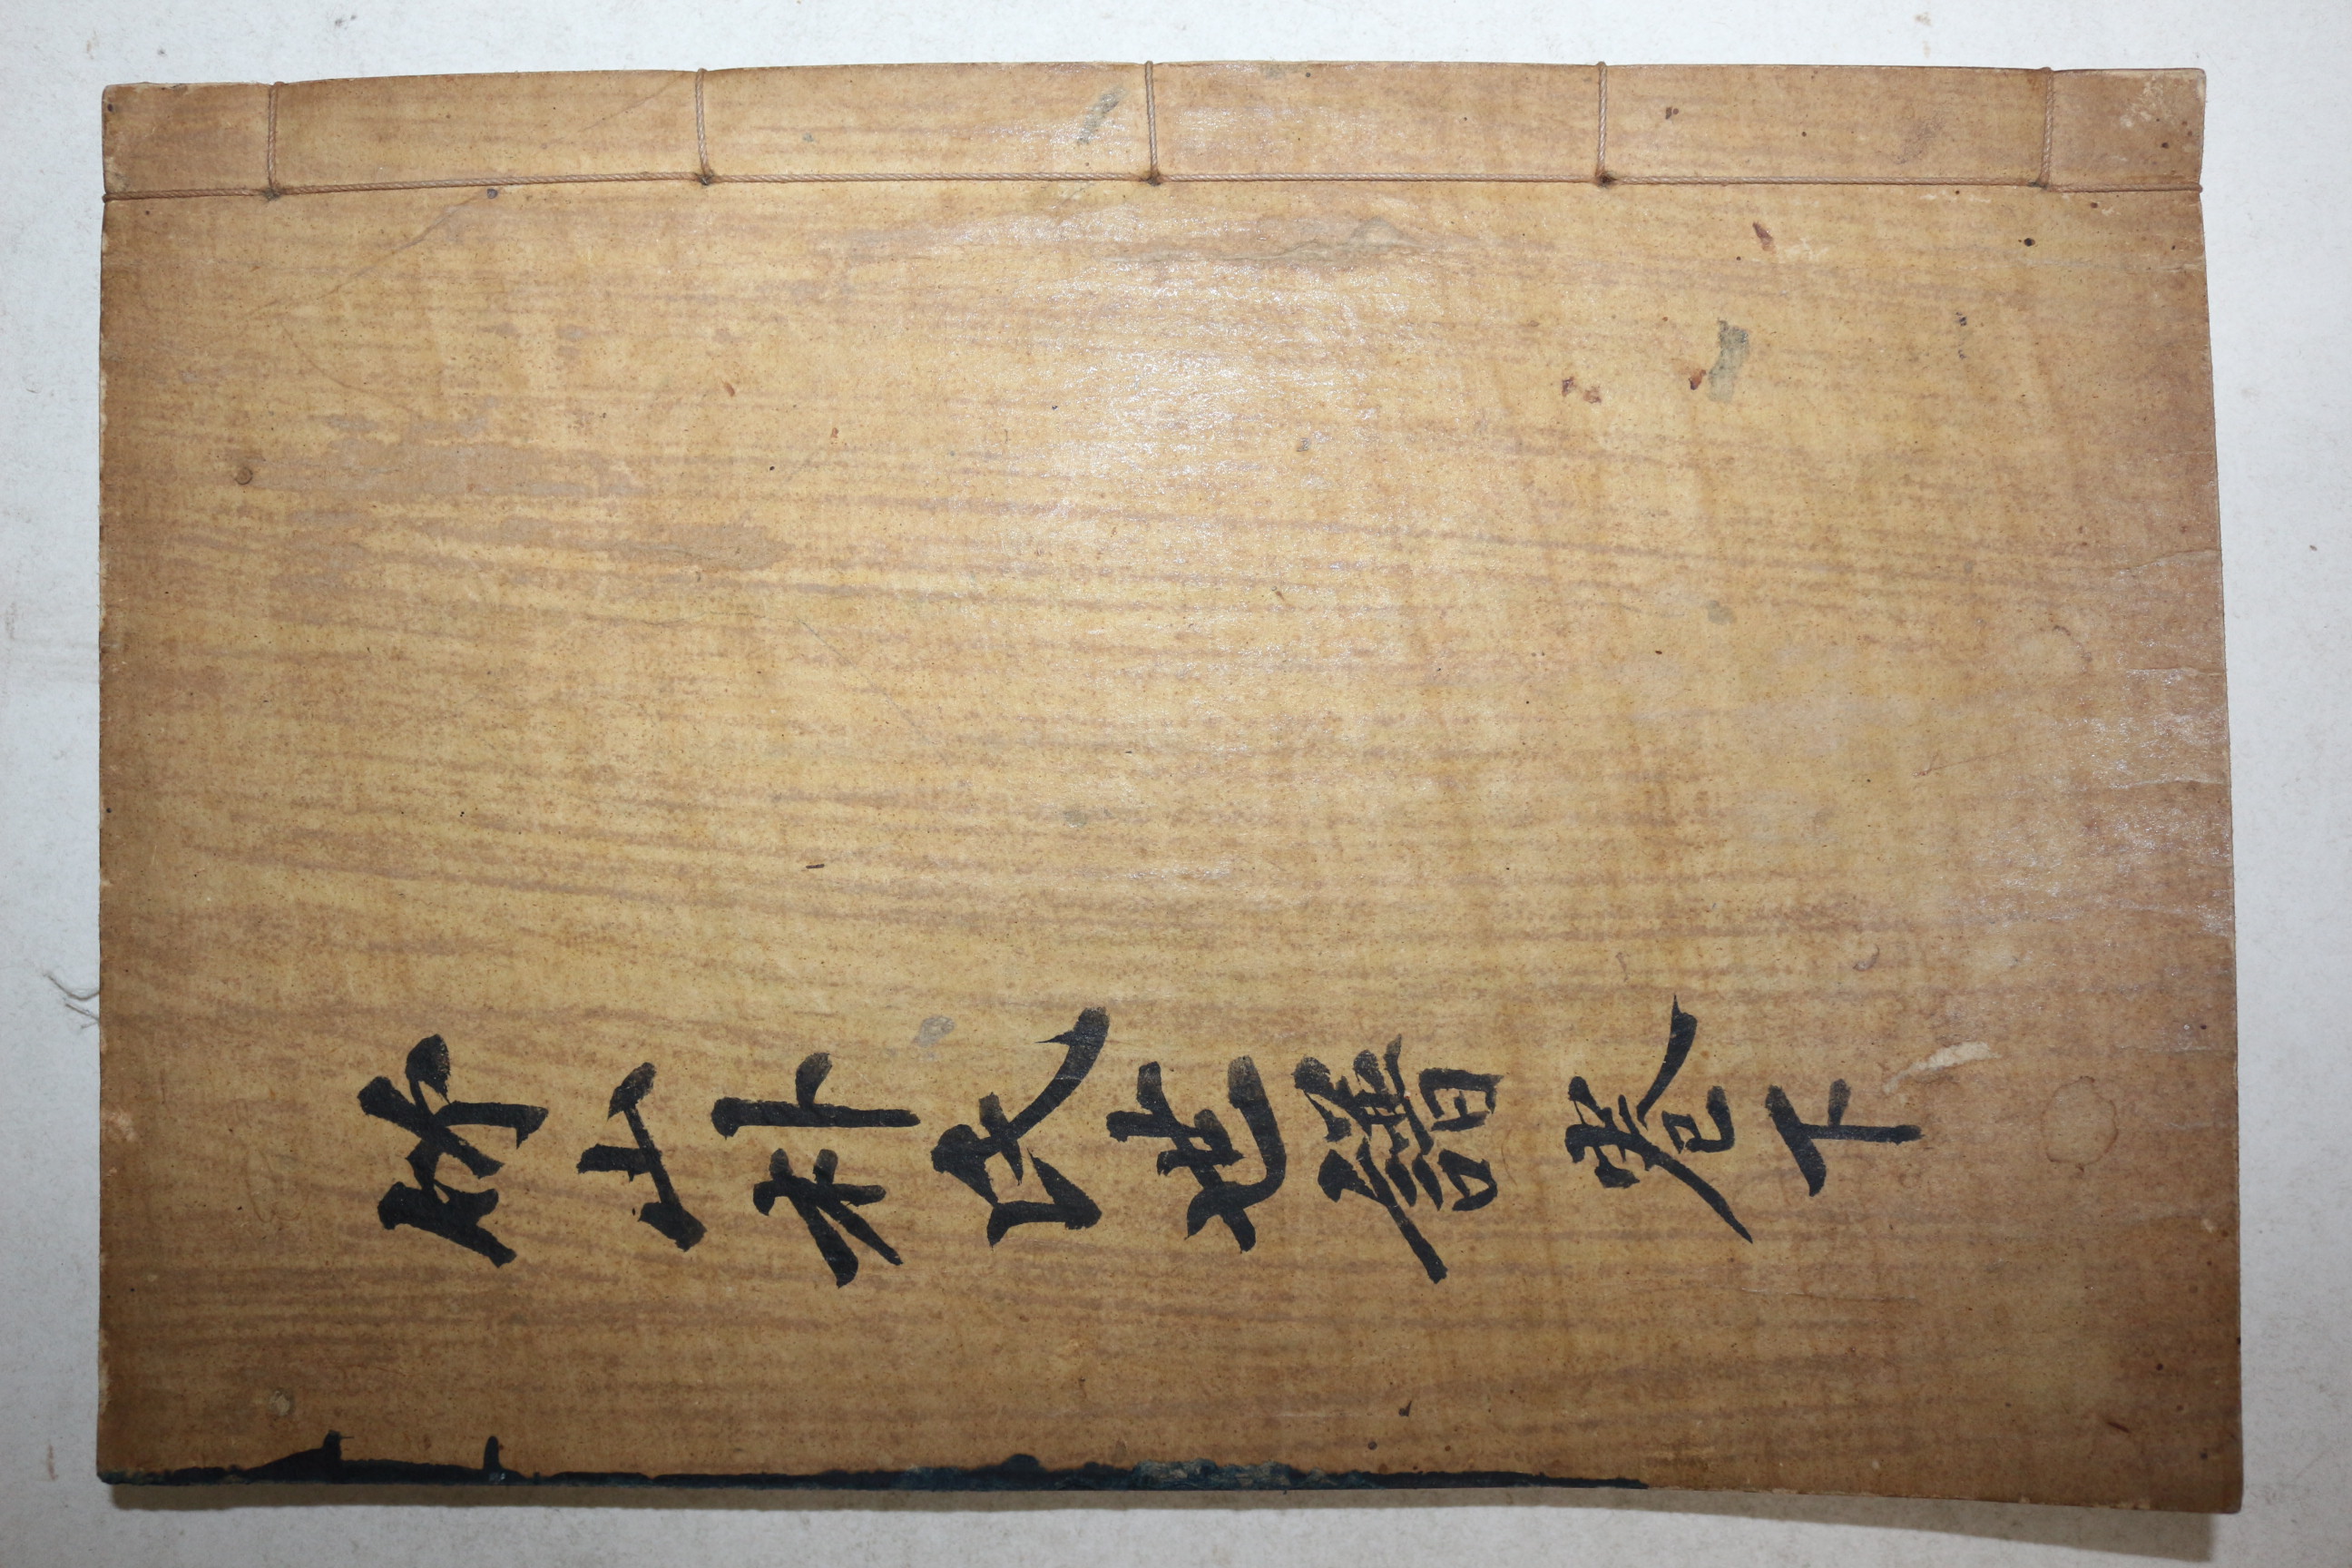 竹山朴氏世譜 卷下